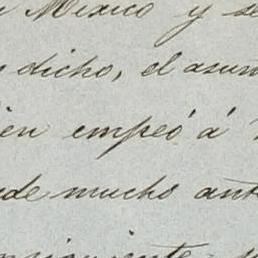 Mexico y se
dicho, el asun
ien empeó á
de mucho ant